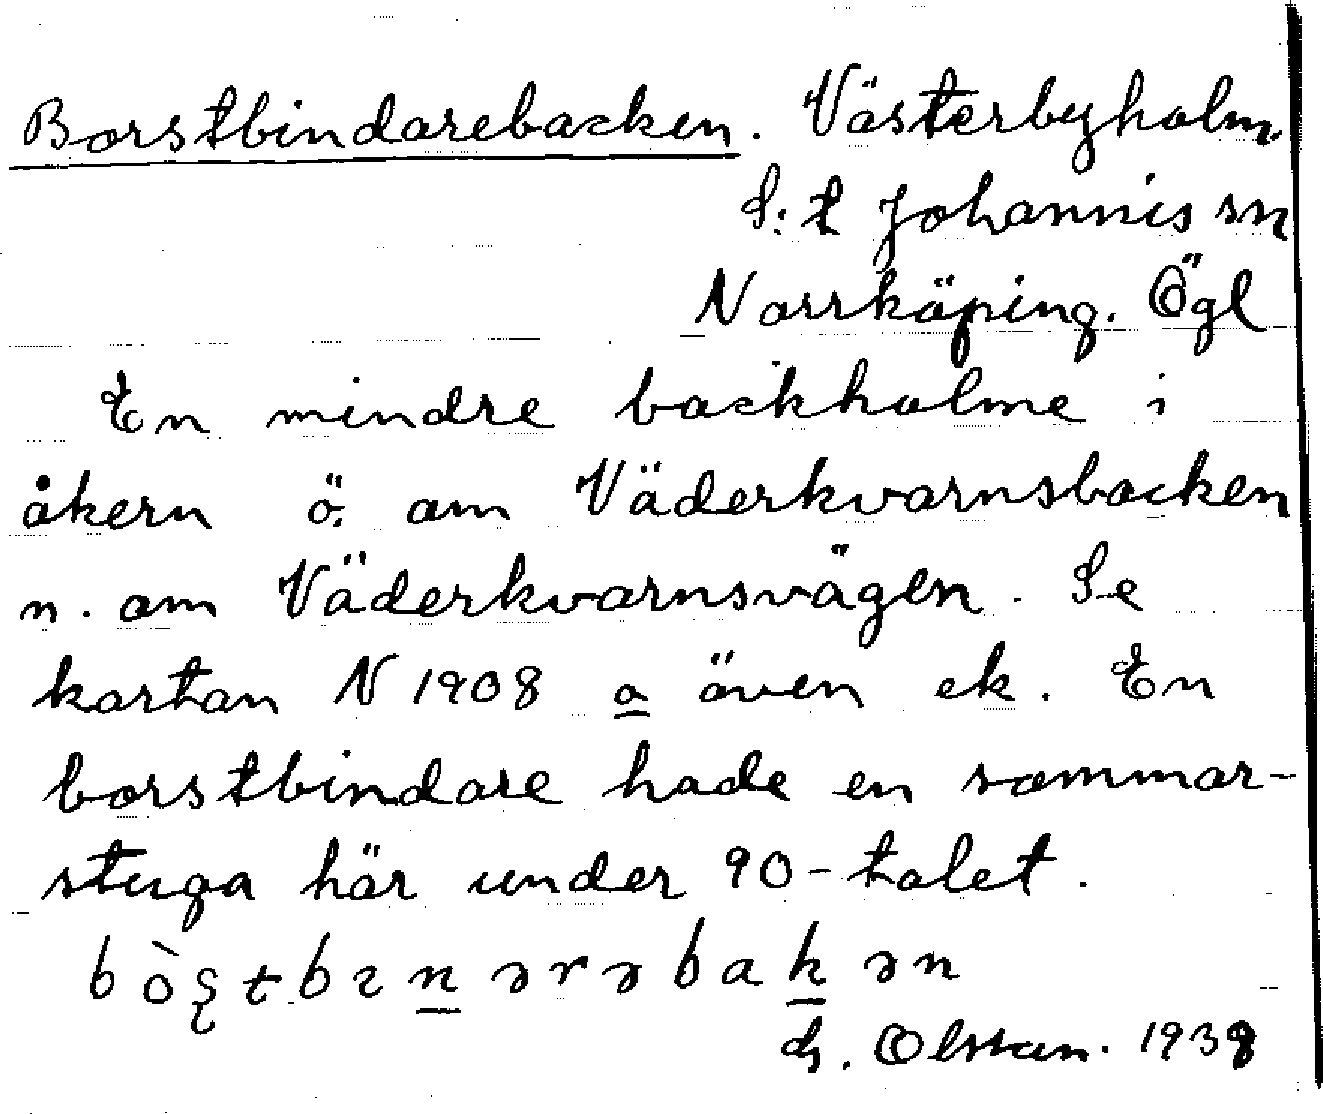 Borstbindarebacken. Västerbyholm.
S:t Johannis sn
Norrköping. Ögl
En mindre backholme i
åkern ö. om Väderkvarnsbacken
n. om Väderkvarnsvägen. Se
kartan N 1908 a även ek. En
borstbindare hade en sommar-
stuga här under 90-talet.
bòʂtbɪnərəbakən
G. Olsson. 1938